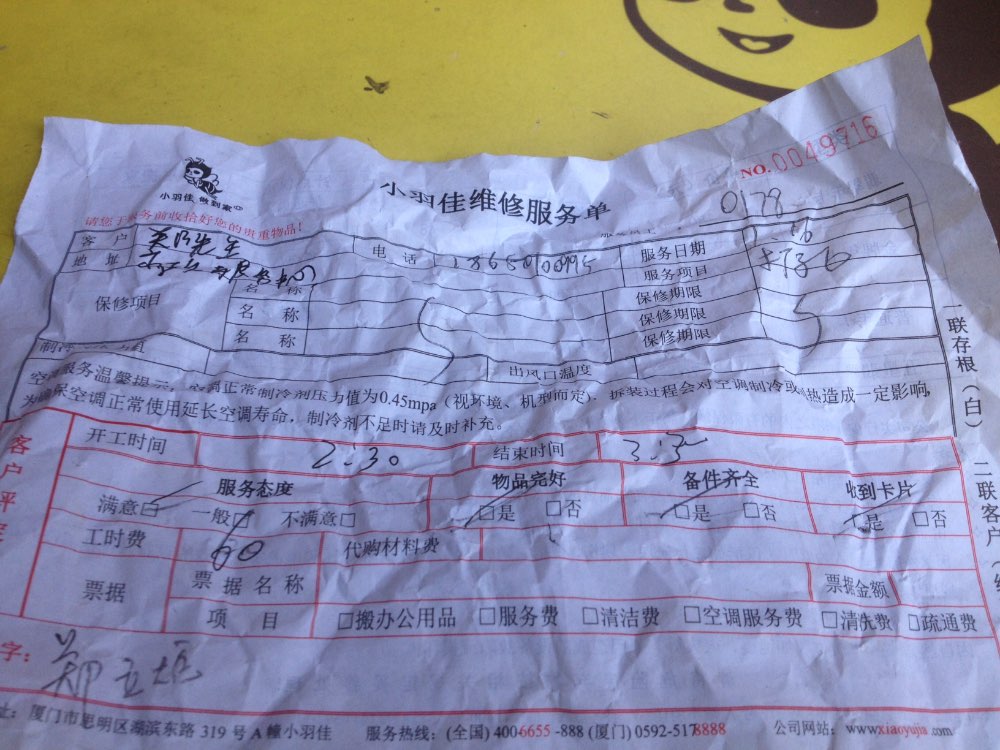 NO.0049716
小羽佳 做到家
小羽佳维修服务单
0178
请您于服务前收拾好您的贵重物品!
客户 先生 电话 服务日期
地址 服务项目
保修项目 名称 保修期限
名称 保修期限
名称 保修期限
制冷 出风口温度
空调服务温馨提示:空调正常制冷剂压力值为0.45mpa(视环境、机型而定),拆装过程会对空调制冷或制热造成一定影响,
为确保空调正常使用延长空调寿命,制冷剂不足时请及时补充。
一联存根(白) 二联客户
客户评
开工时间 2:30 结束时间
服务态度 物品完好 备件齐全 收到卡片
满意□ 一般□ 不满意□ □是 □否 □是 □否 是 □否
工时费 代购材料费
票据 票据名称 票据金额
项目 □搬办公用品 □服务费 □清洁费 □空调服务费 □清洗费 □疏通费
字:
址:厦门市思明区湖滨东路 319 号 A 幢小羽佳 服务热线:(全国) 4006655 -888 (厦门) 0592-5178888 公司网站: www.xiaoyujia.com